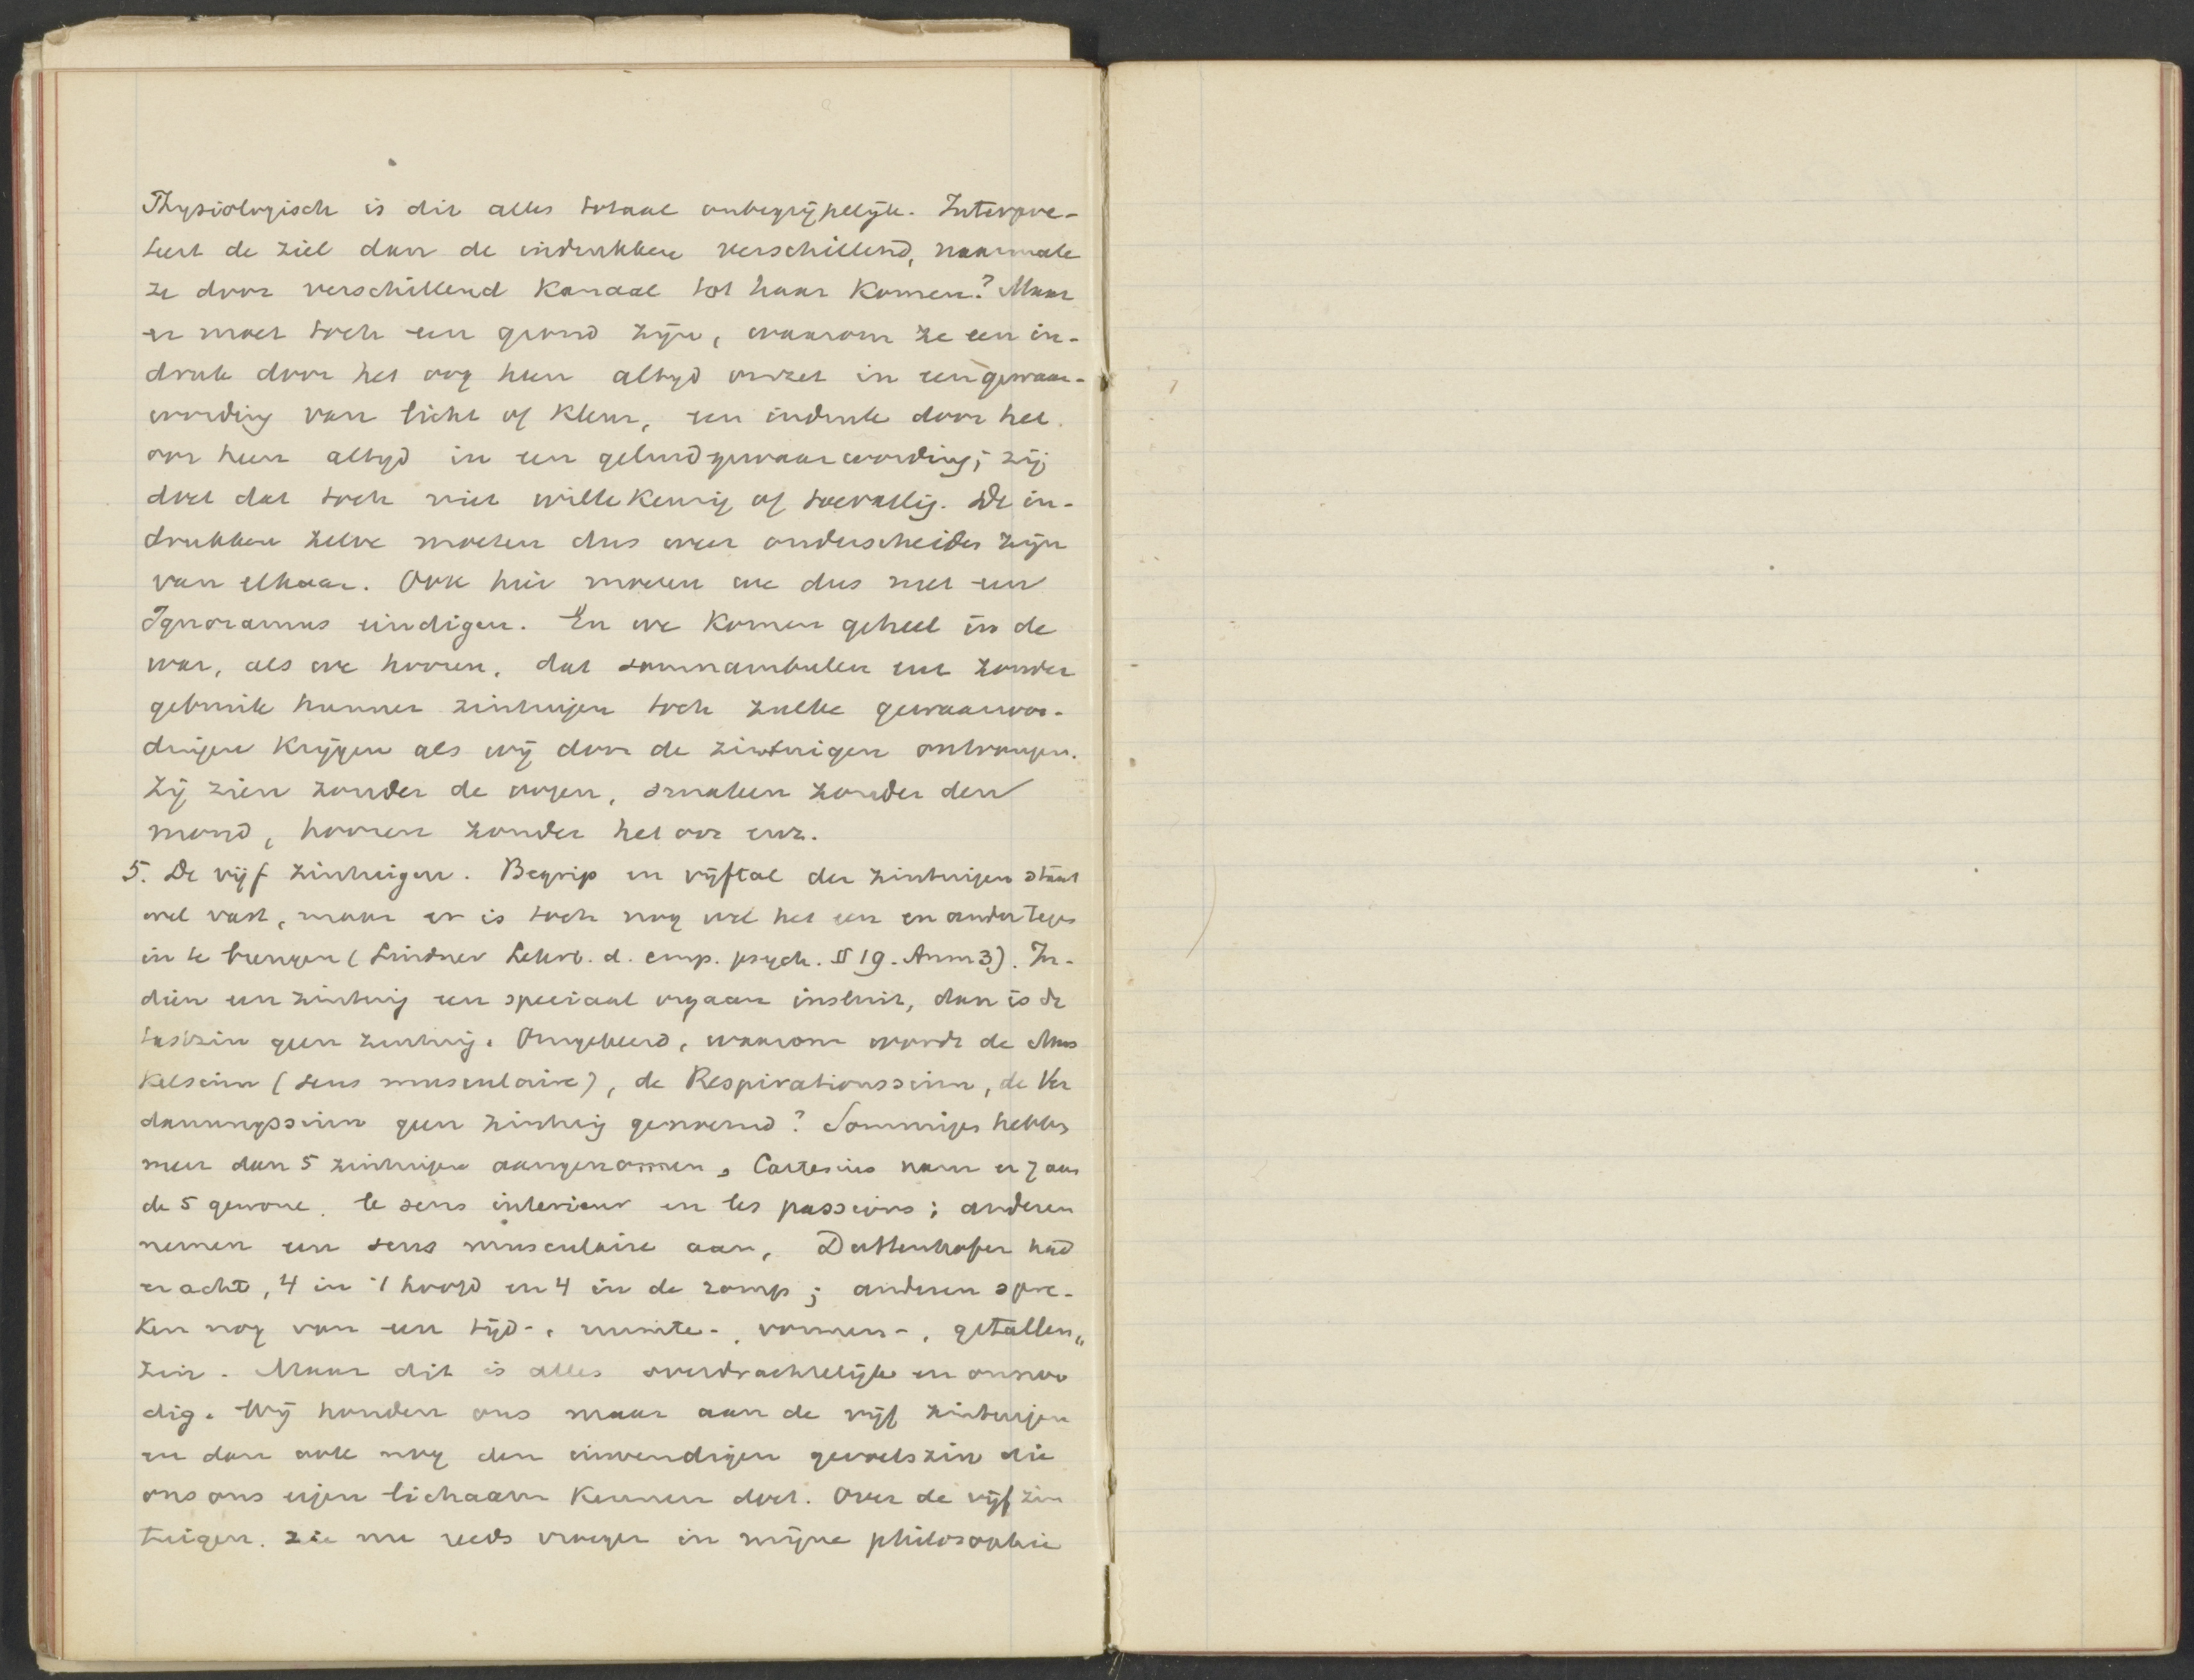 Physiologisch is dit alles totaal onbegrijpelijk. Interpre-
teert de ziel dan de indrukken verschillend, naarmate
ze door verschillend Kanaal tot haar Komen? Maar
er moet toch een grond zijn, waarom ze een in-
druk door het oog heen altyd omzet in een gewaar-
wording van licht of Kleur, een indruk door het
oor heen altyd in een geluidgewaarwording; zij
doet dat toch niet willeKeurig of toevallig. De in-
drukken zelve moeten dus weer onderscheiden zijn
van elkaar. Ook hier moeten we dus met een
Ignoramus eindigen. En we Komen geheel in de
war, als we hooren, dat somnambulen enz zonder
gebruik hunner zintuigen toch zulke gewaarwor-
dingen Krijgen als wij door de zintuigen ontvangen.
Zij zien zonder de oogen, smaken zonder den
mond, hooren zonder het oor enz.
5. De vijf zintuigen. Begrip en vijftal der zintuigen staat
wel vast, maar er is toch nog wel het een en ander tegen
in te brengen (Lindner Lehrb. d. emp. psych. § 19. Anm 3). In-
dien een zintuig een speciaal orgaan insluit, dan is de
tastzin geen zintuig. Omgekeerd, waarom wordt de Mus
Kelsinn (sens musculaire), de Respirationssinn, de Ver
dauungssinn geen zintuig genoemd? Sommigen hebben
meer dan 5 zintuigen aangenomen, Cartesius nam er 7 aan
de 5 gewone, le sens interieur en les passions; anderen
nemen een sens musculaire aan, Dattenhofer had
er acht, 4 in 't hoofd en 4 in de romp; anderen spre-
Ken nog van een tijd-, ruimte-, vormen-, getallen„
zin. Maar dit is alles overdrachtelijk en onnoo
dig. Wij houden ons maar aan de vijf zintuigen
en dan ook nog den inwendigen gevoelszin die
ons ons eigen lichaam Kennen doet. Over de vijf zin
tuigen. zie nu reeds vroeger in mijne philosophie